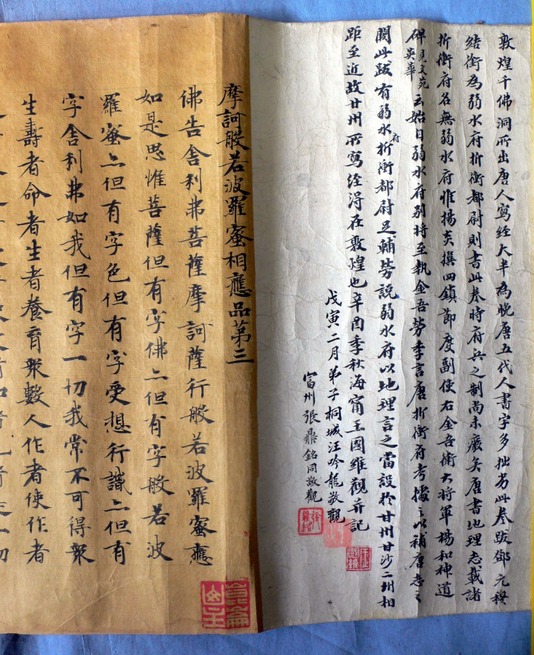 敦煌千佛洞所出唐人寫經大半為晚唐五代人書字多拙劣此卷跋鄧元穆
結銜為弱水府折衝都尉則書此卷時府兵之制尚未廢矣唐書地理志載諸
折衝府名無弱水府惟楊炎撰四鎮節度副使右金吾衛大將軍楊和神道
碑見文苑英華云始自弱水府別將至執金吾勞季言唐折衝府考據之以補唐志之
闕此跋有弱水府折衝都尉足輔勞說弱水府以地理言之當設於甘州甘沙二州相
距至近故甘州所寫經得在敦煌也辛酉季秋海甯王國維觀并記
戊寅二月弟子桐城汪吟龍敬觀
富州張鼎銘同敬觀
摩訶般若波羅蜜相應品第三
佛告舍利弗菩薩摩訶薩行般若波羅蜜應
如是思惟菩薩但有字佛亦但有字般若波
羅蜜亦但有字色但有字受想行識亦但有
字舍利弗如我但有字一切我常不可得眾
生壽者命者生者養育眾數人作者使作者